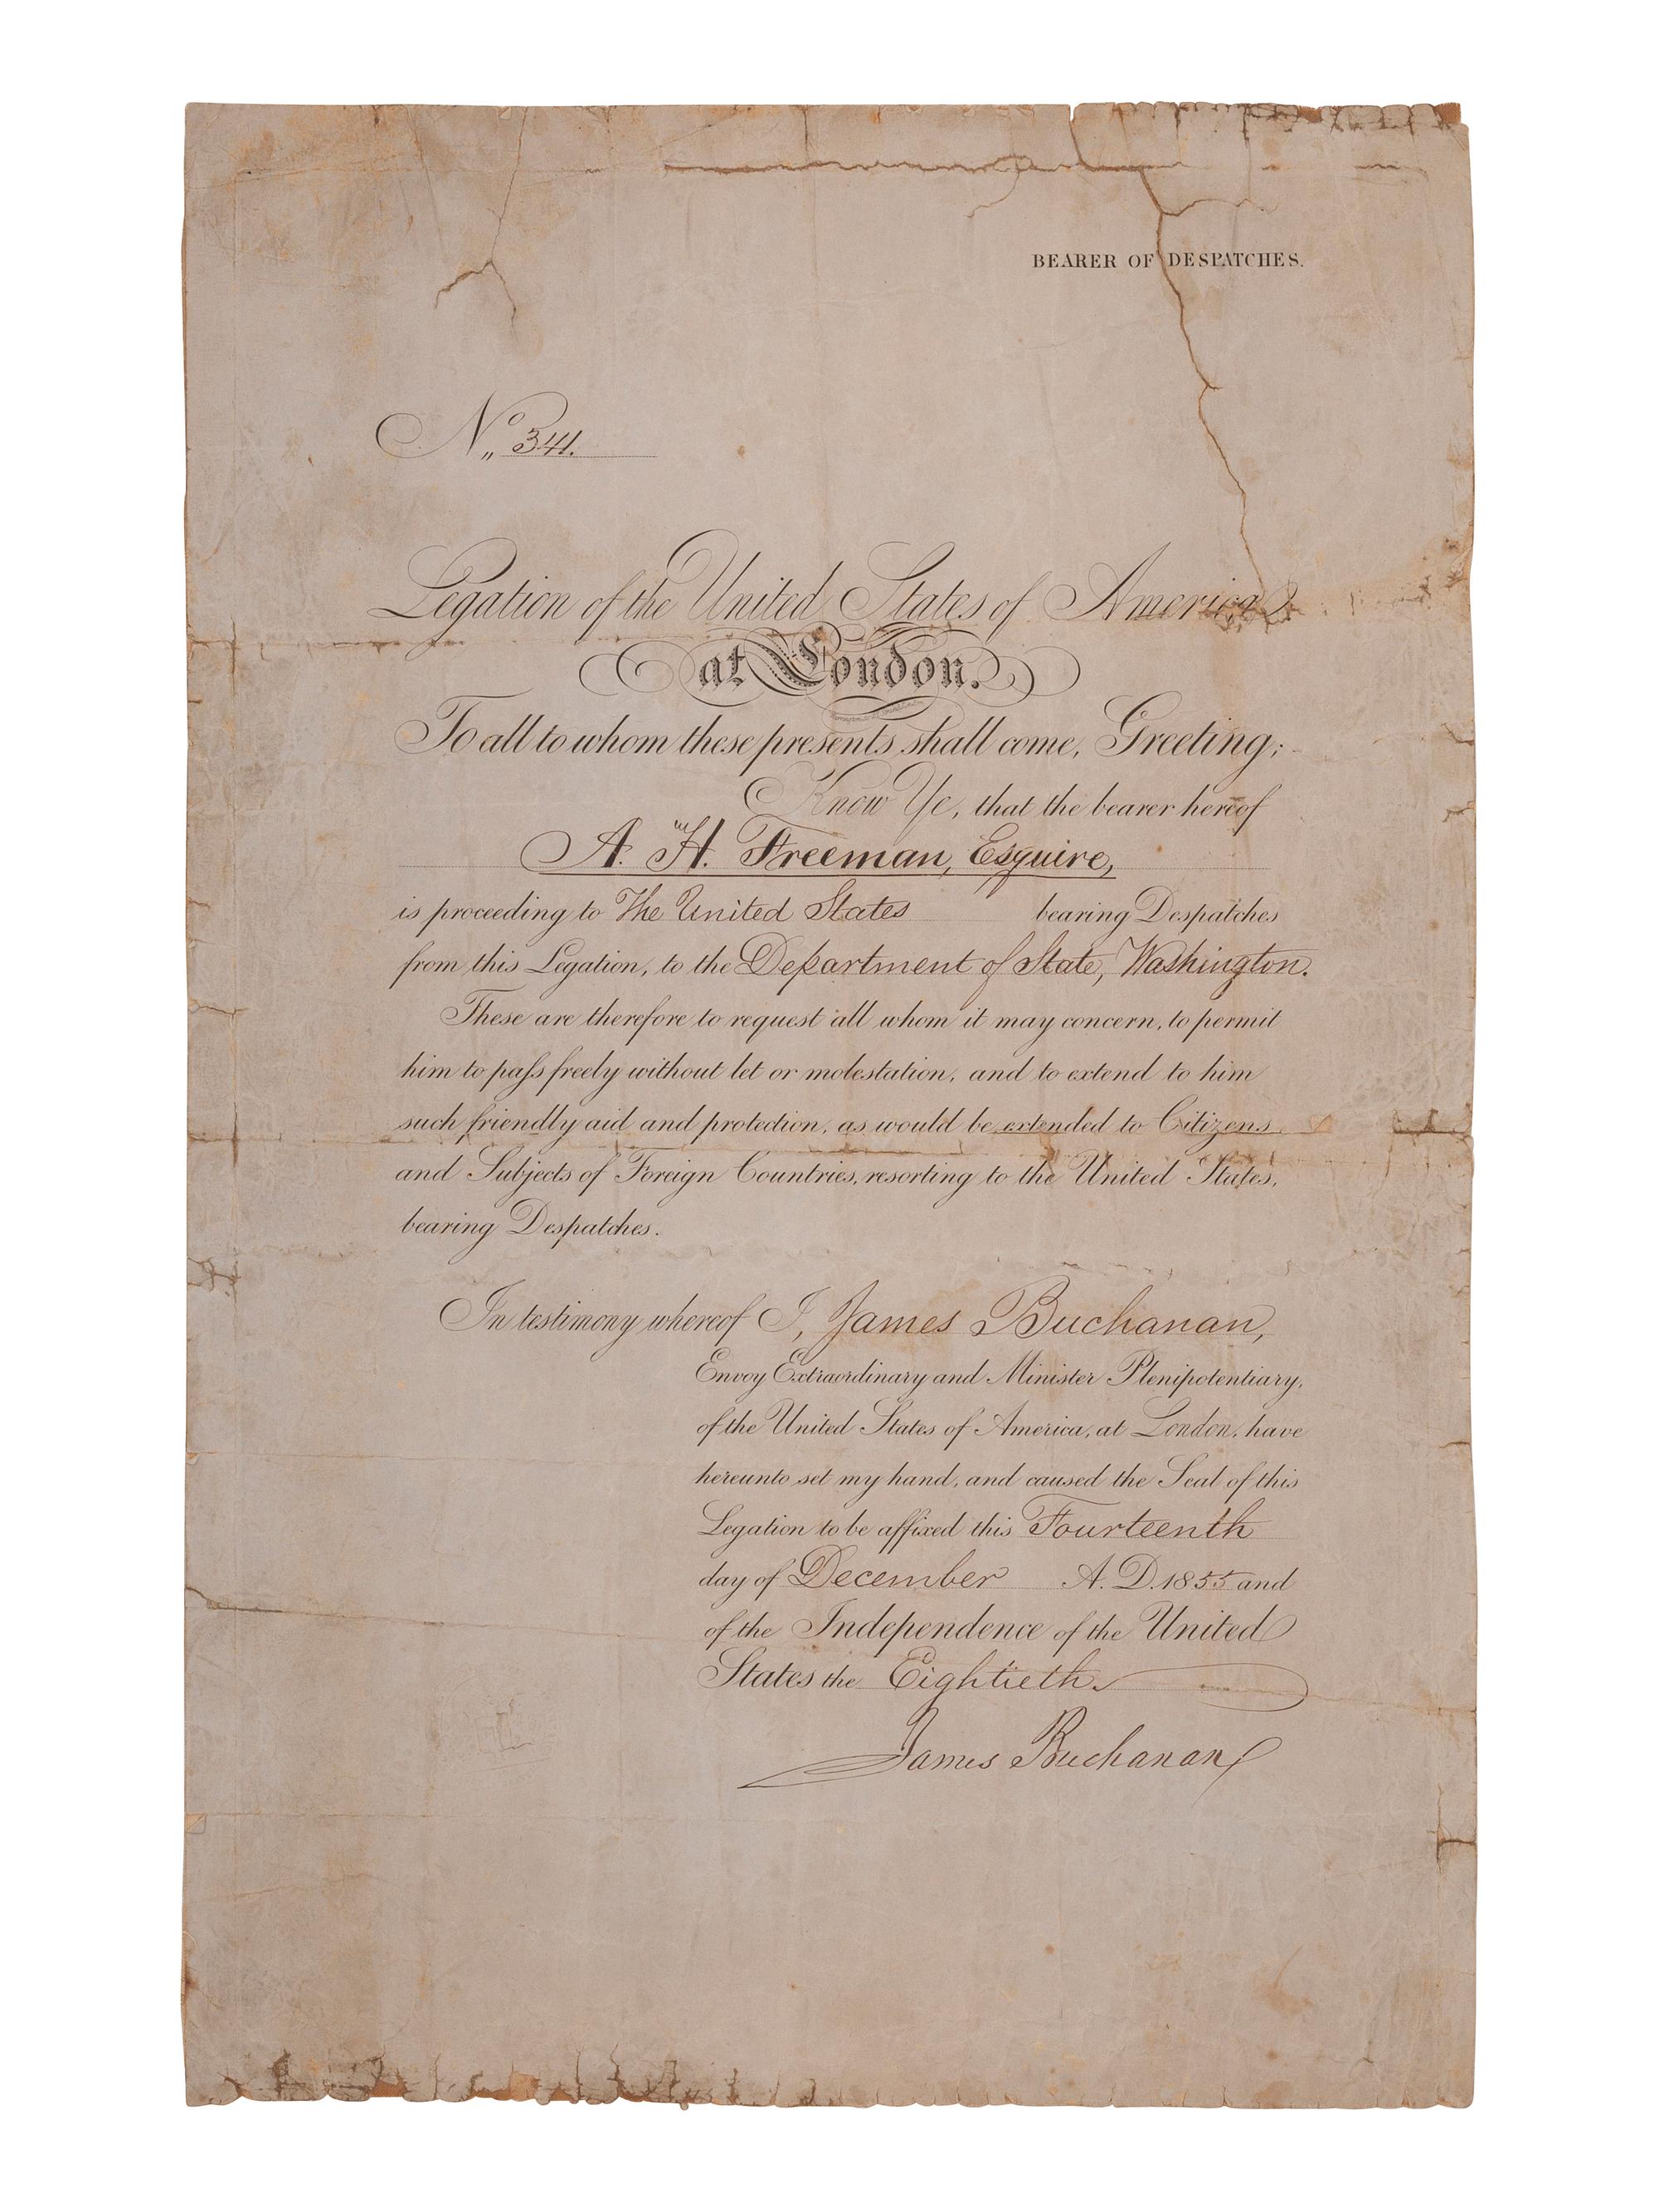 BEARER OF DESPATCHES.
No„ 341.
Legation of the United States of America
at London.
To all to whom these presents shall come, Greeting;
Know Ye, that the bearer hereof
A. "H. Freeman, Esquire,
is proceeding to The United States bearing Despatches
from this Legation, to the Department of State, Washington.
These are therefore to request all whom it may concern, to permit
him to paſs freely without let or molestation, and to extend to him
such friendly aid and protection, as would be extended to Citizens
and Subjects of Foreign Countries, resorting to the United States,
bearing Despatches.
In testimony whereof I, James Buchanan,
Envoy Extraordinary and Minister Plenipotentiary,
of the United States of America, at London, have
hereunto set my hand, and caused the Seal of this
Legation to be affixed this Fourteenth
day of December A. D. 1855 and
of the Independence of the United
States the Eightieth.
James Buchanan